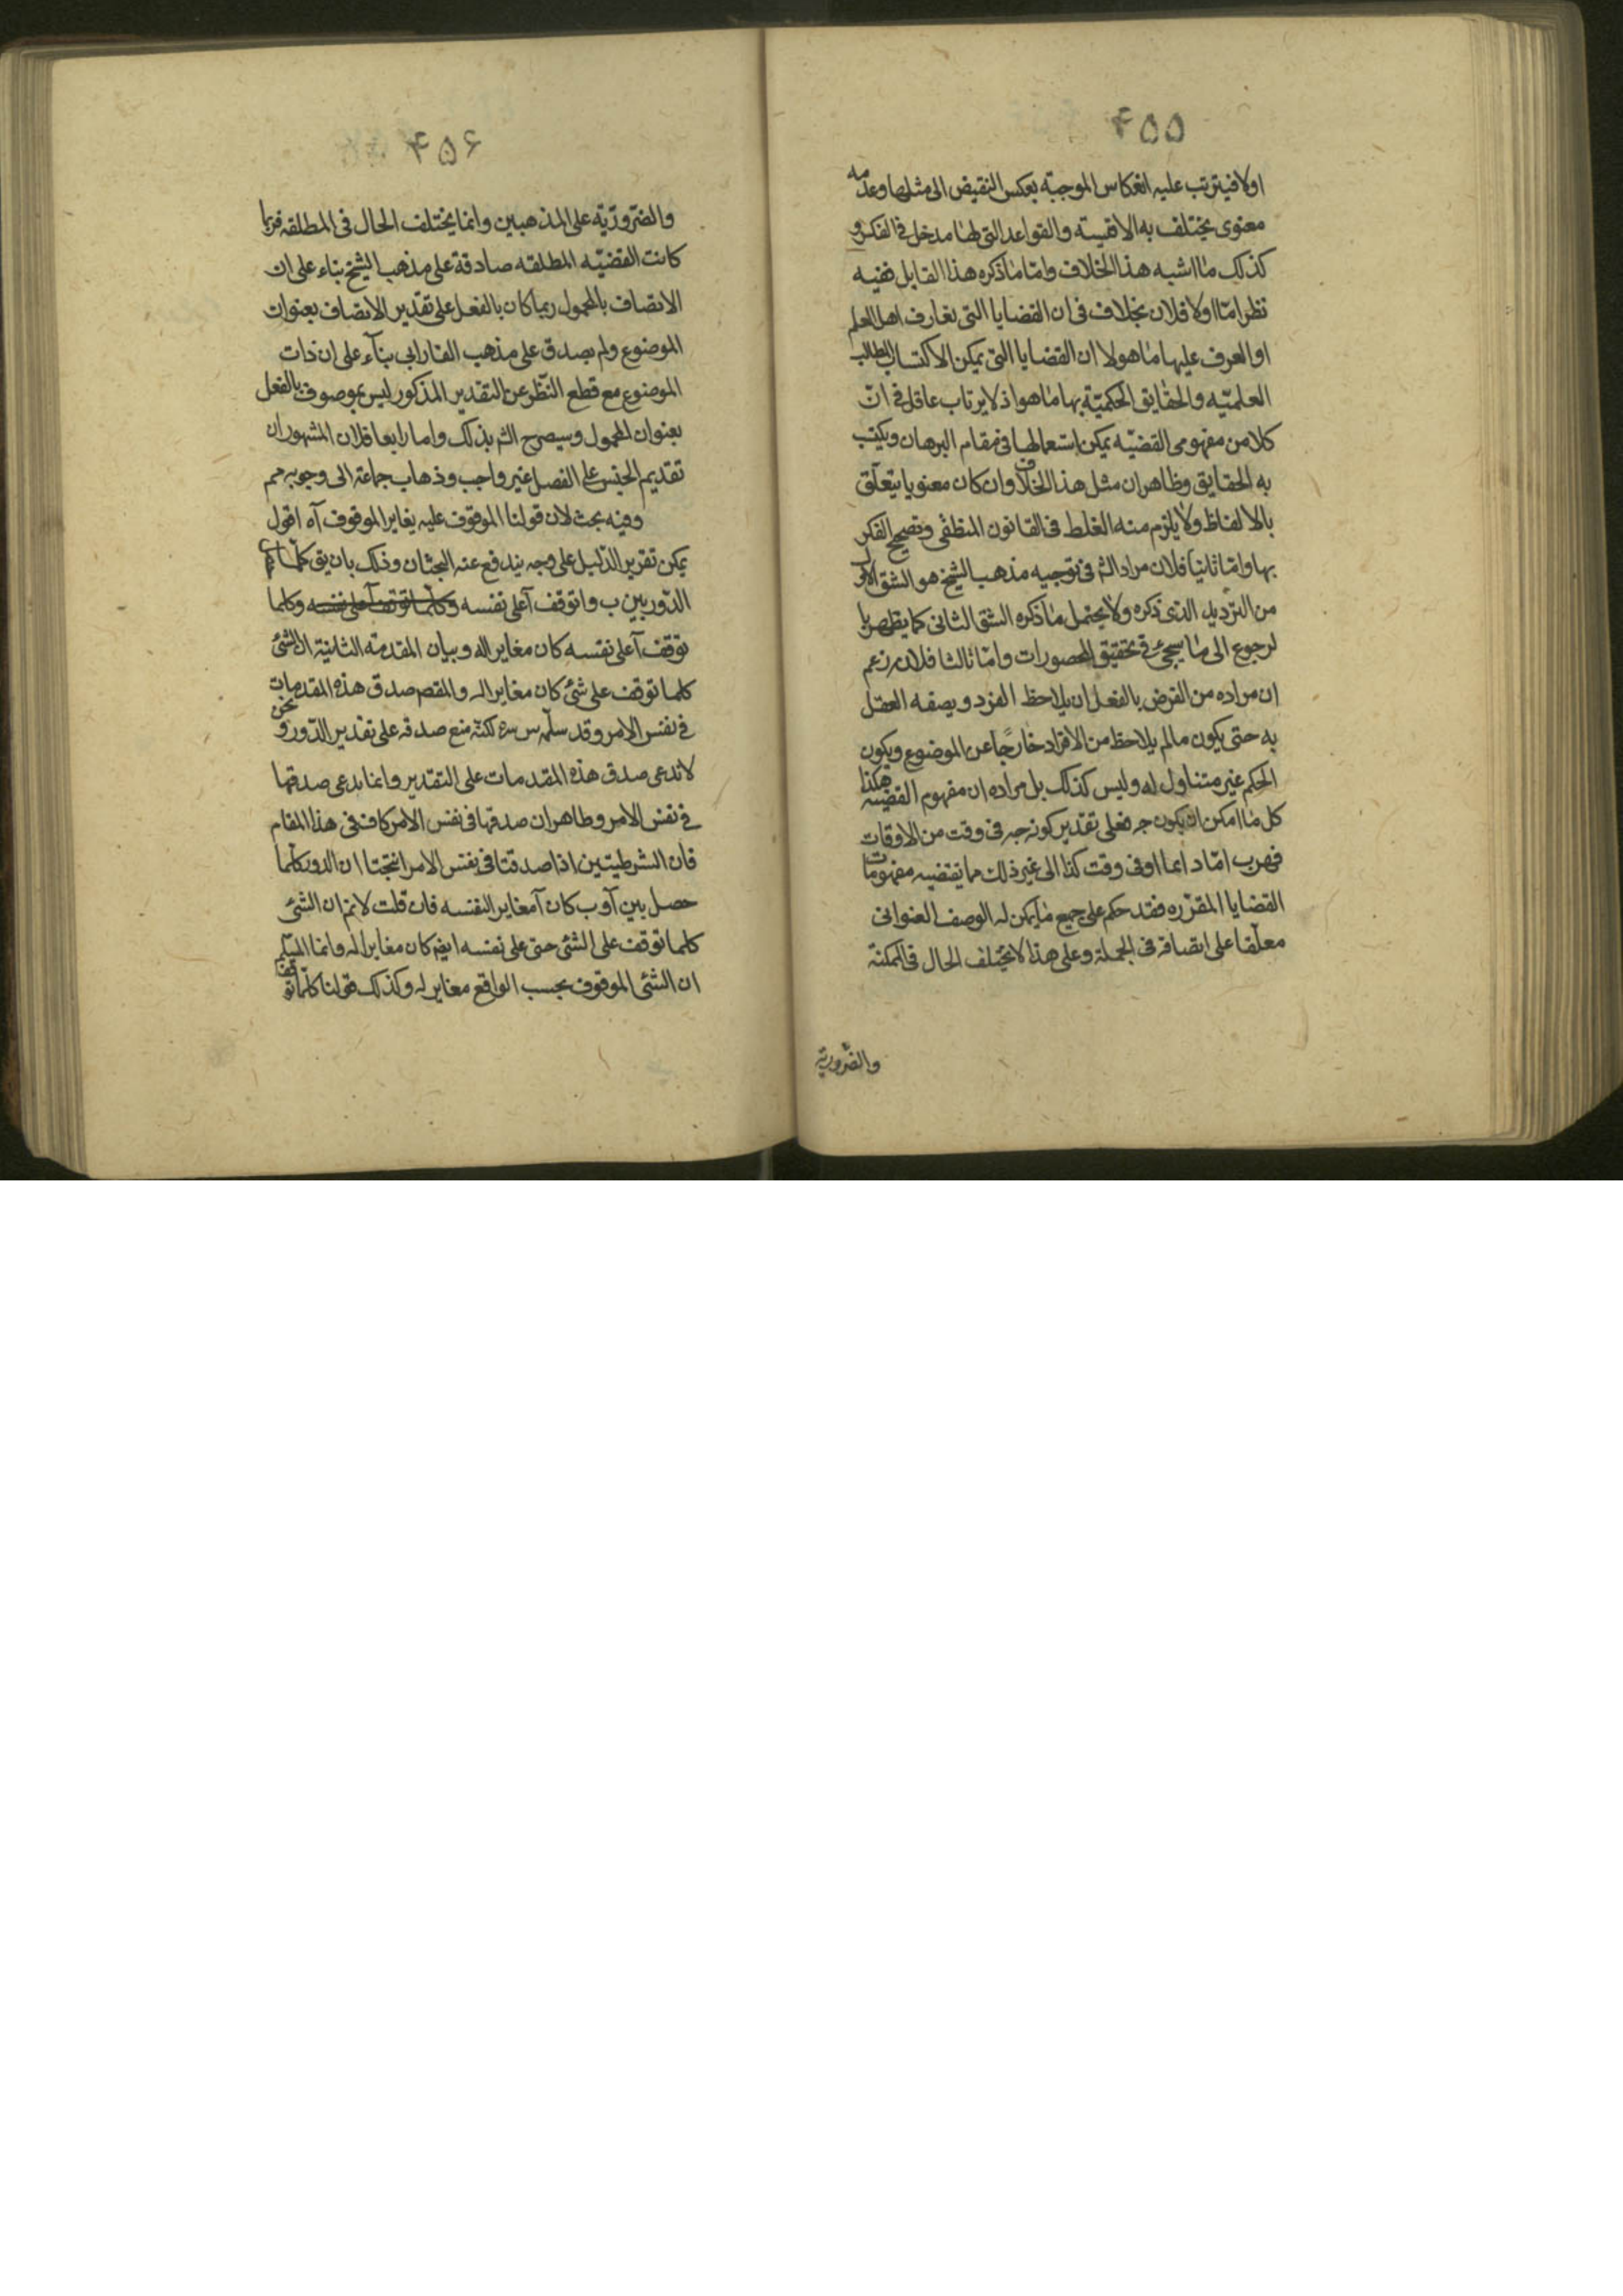 ۴۵۵
اولا فيترتب عليه انعكاس الموجبة بعكس النقيض الى مثلها وعدمه
معنوى يختلف به الاقيسة والقواعد التى لها مدخل فى الفكر و
كذلك ما اشبه هذا الخلاف واما ما ذكره هذا القايل ففيه
نظر اما اولا فلان بخلاف فى ان القضايا التى تعارف اهل العلم
او العرف عليها ما هو لا ان القضايا التى يمكن الاكتساب المطالب
العلميّه والحقايق الحكميّة بها ما هو اذ لا يرتاب عاقل فى انّ
كلا من مفهومى القضيّه يمكن استعمالها فى مقام البرهان ويكتسب
به الحقايق وظاهر ان مثل هذا الخلاف وان كان معنويا يتعلّق
بالالفاظ ولا يلزم منه الغلط فى القانون المنطقى وتصحيح الفكر
بها واما ثانيا فلان مراد الشم فى توجيه مذهب الشيخ هو الشق الاول
من الترديد الذى ذكره ولا يحتمل ما ذكره الشق الثانى كما يظهر با
لرجوع الى ما سيجئ فى تحقيق المحصورات واما ثالثا فلانه زعم
ان مراده من الفرض بالفعل ان يلاحظ الفرد ويصفه العقل
به حتى يكون مالم يلاحظ من الافراد خارجًا عن الموضوع ويكون
الحكم غير متناول له وليس كذلك بل مراده ان مفهوم القضيه هكذا
كل ما امكن ان يكون ج فعلى تقدير كونه ج فى وقت من الاوقات
فهو ب امّا دايما او فى وقت كذا الى غير ذلك مما يقتضيه مفهومات
القضايا المقرره فقد حكم على جميع ما يمكن له الوصف العنوانى
معلّقا على اتصافه فى الجملة وعلى هذا لا يختلف الحال فى الممكنة
والضّروريّة
۴۵۶
والضّروريّة على المذهبين وانما يختلف الحال فى المطلقه فربما
كانت القضيّه المطلقه صادقة على مذهب الشيخ بناء على ان
الاتصاف بالمحمول ربما كان بالفعل على تقدير الاتصاف بعنوان
الموضوع ولم يصدق على مذهب الفارابى بناء على ان ذات
الموضوع مع قطع النّظر عن التقدير المذكور ليس بموصوف بالفعل
بعنوان المحمول وسيصرح الشم بذلك واما رابعا فلان المشهور ان
تقديم الجنس على الفصل غير واجب وذهاب جماعة الى وجوبه مم
وفيه بحث لان قولنا الموقوف عليه يغاير الموقوف آه اقول
يمكن تقرير الدّليل على وجه يندفع عنه البحثان وذلك بان يق كلّما تم
الدّور بين ب و ا توقف آ على نفسه وكلّما توقف آ على نفسه وكلما
توقف آ على نفسه كان مغايرا له وبيان المقدمة الثانية ان الشئ
كلما توقف على شئ كان مغايرا له والمقصم صدق هذه المقدمات
فى نفس الامر وقد سلّمه س سره لكنّه منع صدقه على تقدير الدّور ونحن
لا ندعى صدق هذه المقدمات على التقدير وانما ندعى صدقها
فى نفس الامر وظاهر ان صدقها فى نفس الامر كاف فى هذا المقام
فان الشرطيتين اذا صدقتا فى نفس الامر انتجتا ان الدور كلّما
حصل بين آ و ب كان آ مغايرا لنفسه فان قلت لا نم ان الشئ
كلما توقف على الشئ حتى على نفسه ايضم كان مغايرا له وانما المسلّم
ان الشئ الموقوف بحسب الواقع مغاير له وكذلك قولنا كلّما توقف